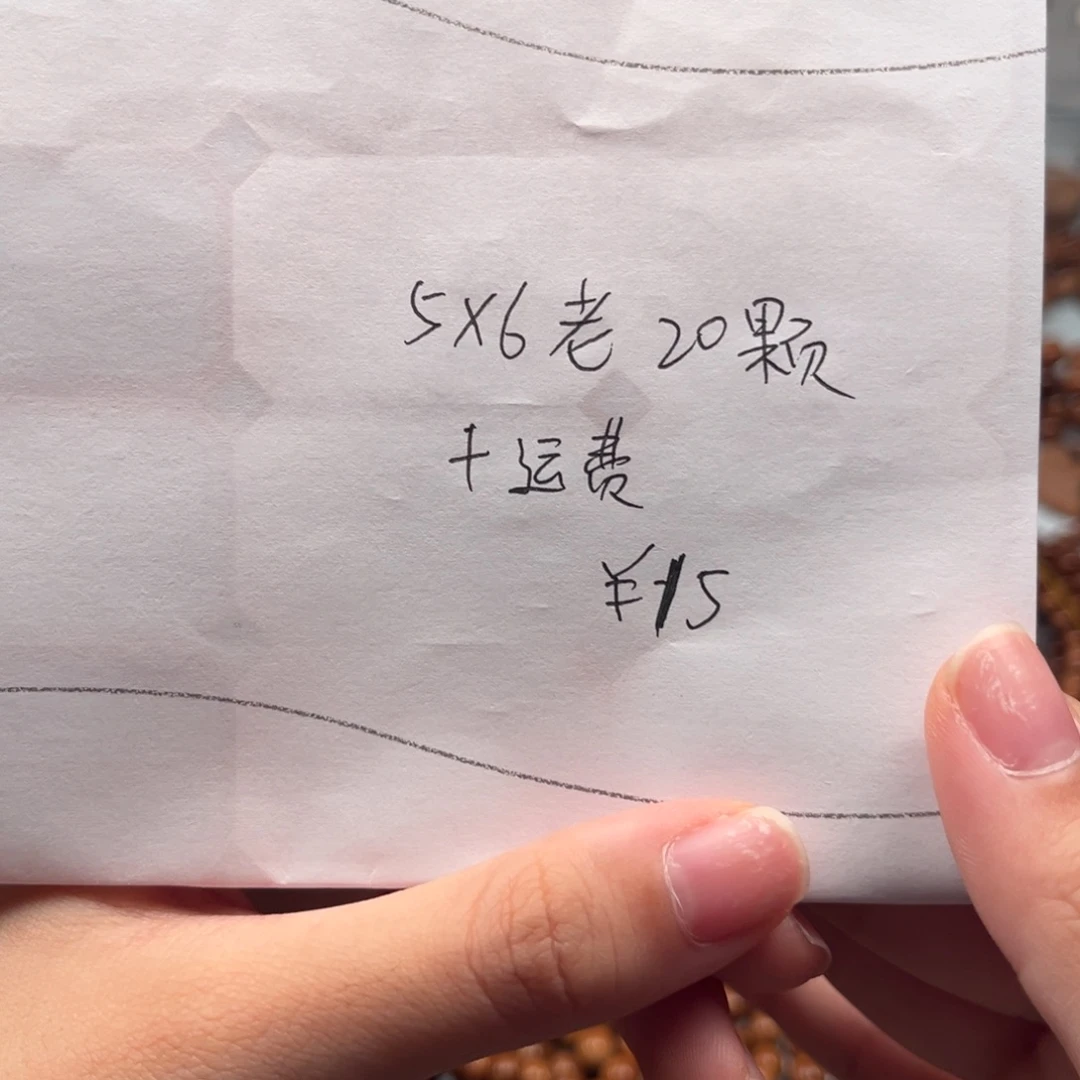 5×6老 20颗
+运费
¥15